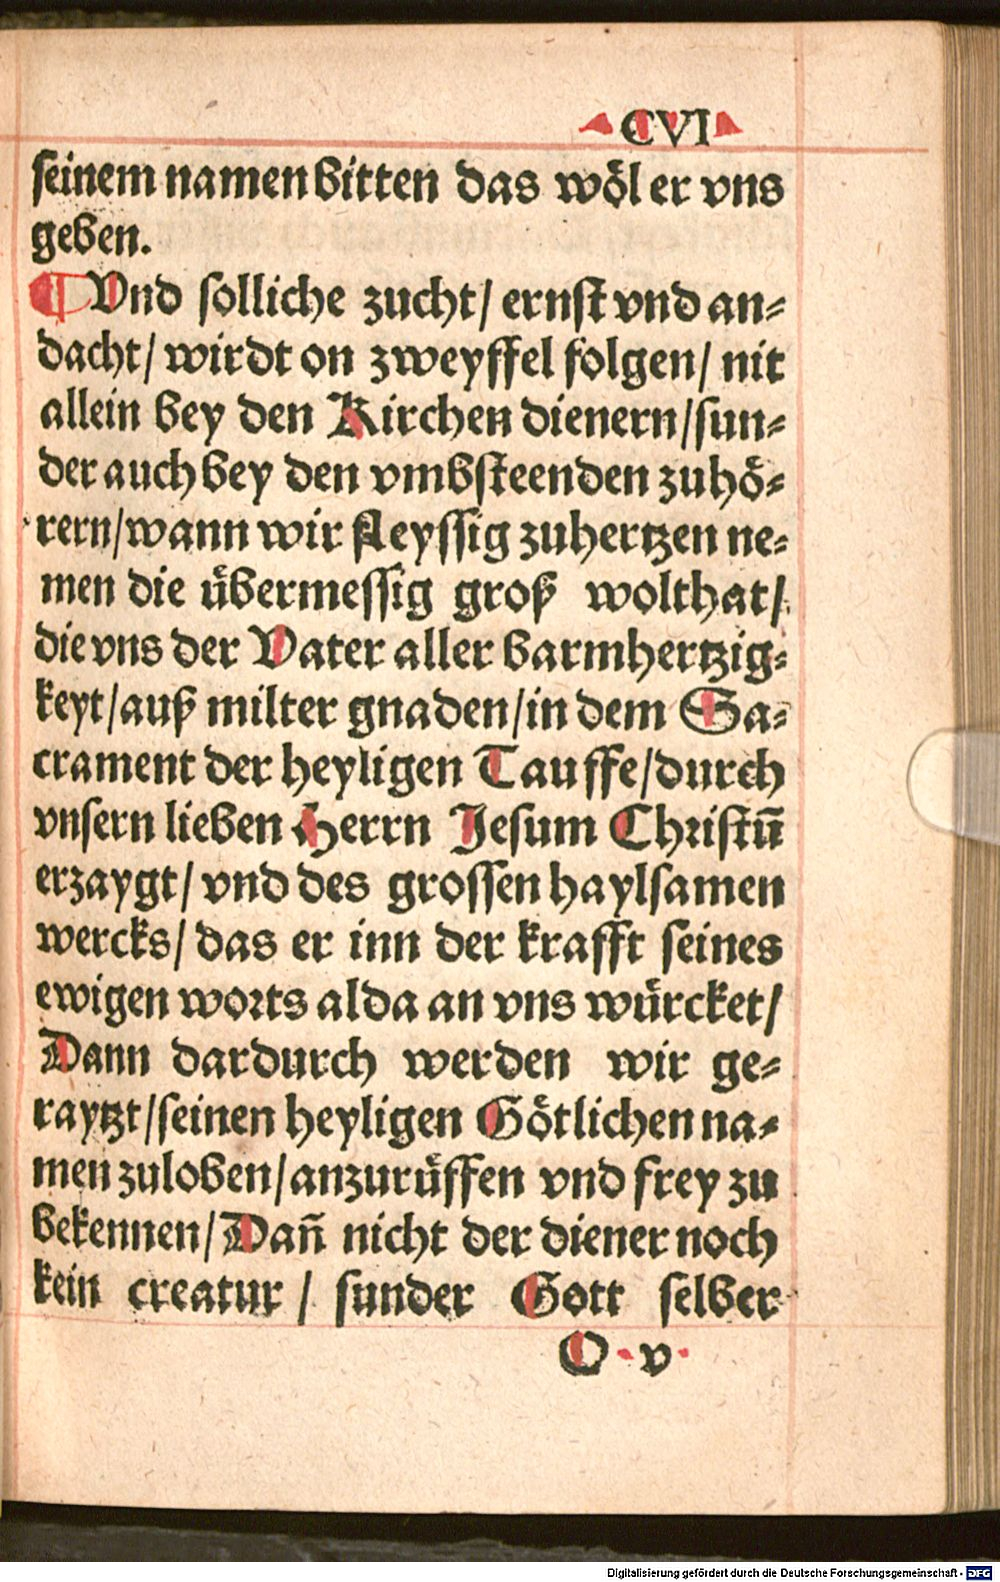 CVI
seinem namen bitten das wöl er vns
geben.
¶ Vnd solliche zucht/ ernst vnd an⸗
dacht/ wirdt on zweyffel folgen/ nit
allein bey den Kirchen dienern/sun⸗
der auch bey den vmbsteenden zuhö⸗
rern/wann wir fleyssig zuhertzen ne⸗
men die übermessig groß wolthat/
die vns der Vater aller barmhertzig⸗
keyt/auß milter gnaden/in dem Sa⸗
crament der heyligen Tauffe/durch
vnsern lieben Herrn Jesum Christū
erzaygt/ vnd des grossen haylsamen
wercks/ das er inn der krafft seines
ewigen worts alda an vns würcket/
Dann dardurch werden wir ge⸗
raytzt/seinen heyligen Götlichen na⸗
men zuloben/anzurüffen vnd frey zu
bekennen/Dañ nicht der diener noch
kein creatur / sunder Gott selber
O v
Digitalisierung gefördert durch die Deutsche Forschungsgemeinschaft - DFG